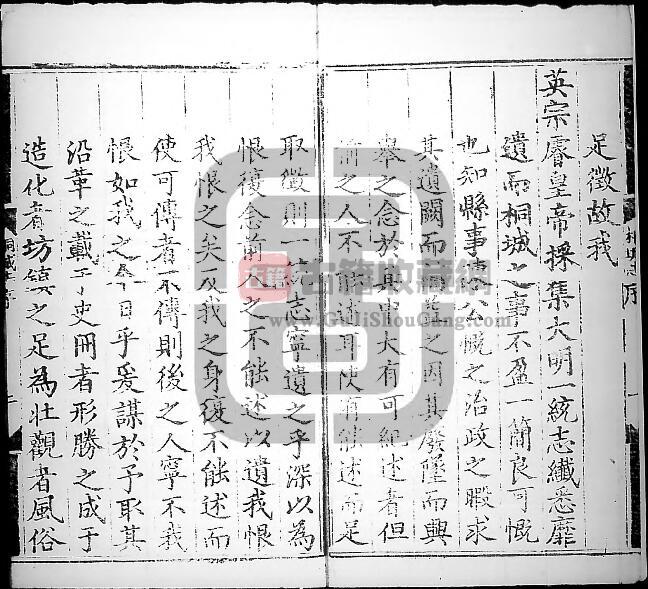 足徵故我
英宗睿皇帝採集大明一統志纖悉靡
遺而桐城之事不盈一簡良可慨
也知縣事陳公慨之治政之暇求
其遺闕而補益之因其廢墜而興
舉之念於其中大有可紀述者但
前之人不能述耳使有能述而足
取徵則一統志寧遺之乎深以為
恨復念前人之不能述以遺我恨
我恨之矣及我之身復不能述而
使可傳者不傳則後之人寧不我
恨如我之今日乎爰謀於予取其
沿革之載于史冊者形勝之成于
造化者坊鎮之足為壯觀者風俗
序
古籍收藏網
www.GuJiShouCang.com